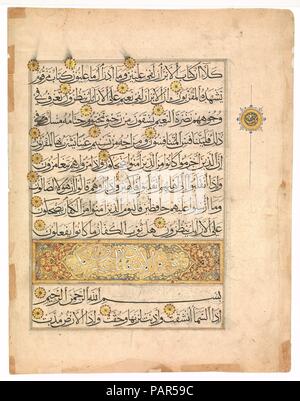 كلا ان كتاب الابرار لفي عليين وما ادراك ما عليون كتاب مرقوم
يشهده المقربون ان الابرار لفي نعيم على الارائك ينظرون تعرف في
وجوههم نضرة النعيم يسقون من رحيق مختوم ختامه مسك وفي
ذلك فليتنافس المتنافسون ومزاجه من تسنيم عينا يشرب بها المقربون
ان الذين اجرموا كانوا من الذين امنوا يضحكون واذا مروا بهم يتغامزون
واذا انقلبوا الى اهلهم انقلبوا فكهين واذا راوهم قالوا ان هؤلاء لضالون
وما ارسلوا عليهم حافظين فاليوم الذين امنوا من الكفار يضحكون
على الارائك ينظرون هل ثوب الكفار ما كانوا يفعلون
بسم الله الرحمن الرحيم
اذا السماء انشقت واذنت لربها وحقت واذا الارض مدت
alamy
PAR59C